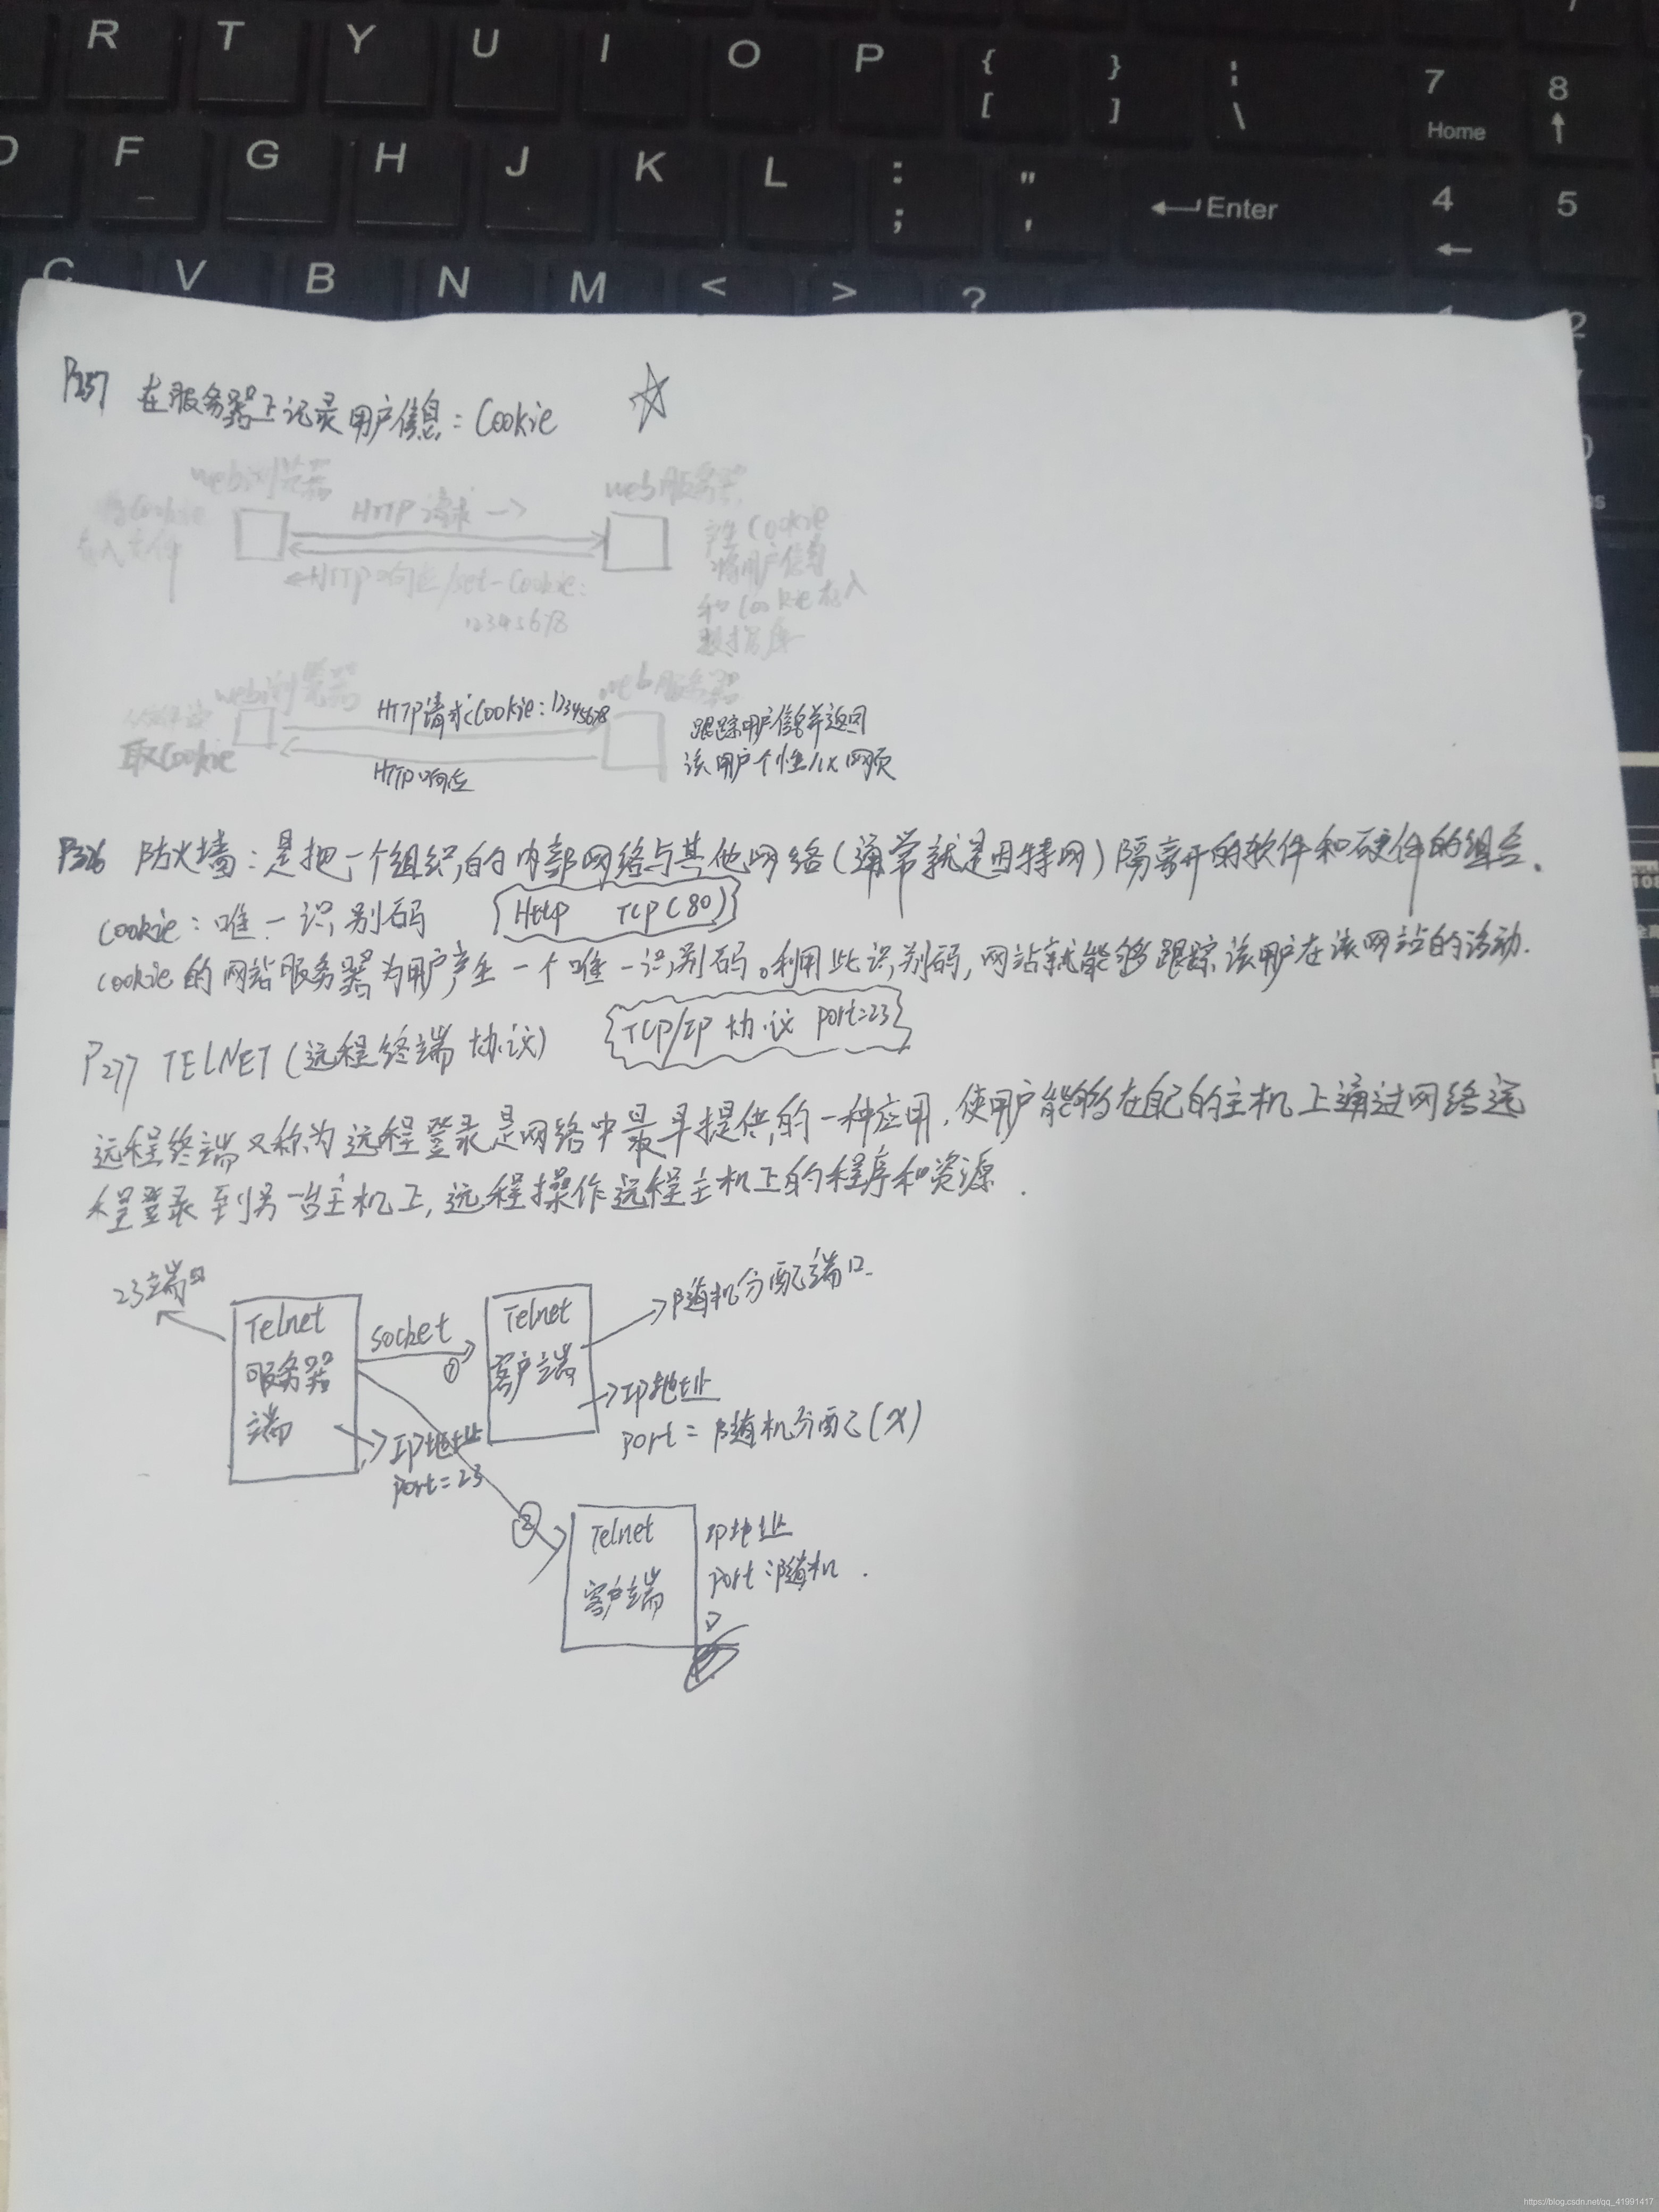 R T Y U I O P { [ } ] : \ 7 Home 8
F G H J K L : ; " ' Enter 4 5
C V B N M < > ?
P257 在服务器上记录用户信息：Cookie
web浏览器 web服务器
将Cookie
存入文件
HTTP请求
HTTP响应/set-Cookie:
12345678
产生Cookie
将用户信息
和Cookie存入
数据库
web浏览器 web服务器
取Cookie
HTTP请求Cookie:12345678
HTTP响应
跟踪用户信息并返回
该用户个性化网页
防火墙：是把一个组织的内部网络与其他网络（通常就是因特网）隔离开的软件和硬件的组合.
Cookie：唯一识别码 Http TCP(80)
Cookie的网站服务器为用户产生一个唯一识别码。利用此识别码，网站就能够跟踪该用户在该网站的活动.
P277 TELNET(远程终端协议) TCP/IP 协议 port=23
远程终端又称为远程登录是网络中最早提供的一种应用，使用户能够在自己的主机上通过网络远
程登录到另一台主机上，远程操作远程主机上的程序和资源.
23端口
Telnet
服务器
端
socket
①
Telnet
客户端
随机分配端口
IP地址
port = 随机分配(X)
IP地址
port=23
②
Telnet
客户端
IP地址
port:随机.
https://blog.csdn.net/qq_41991417